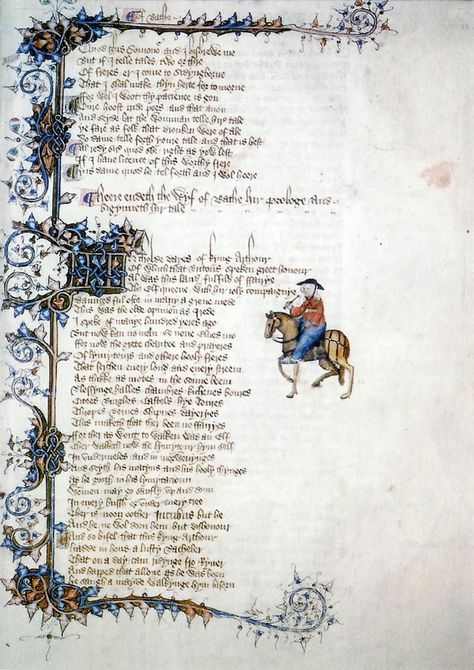 Of Bathe
Quod this Somono and I bishrewe me
But if I telle tales two or thre
Of freres er I come to Sidyngborne
That I shal make thyn herte for to morne
For wel I woot thy pacience is gon
Oure hoost cride pees and that anon
And seyde lat the womman telle hire tale
Ye fare as folk that dronken were of ale
Do dame telle forth youre tale and that is best
Al redy sire quod she right as yow lest
If I haue licence of this worthy frere
Yis dame quod he tel forth and I wol heere
Heere endeth the Wyf of Bathe hir prologe And
bigynneth hir tale
In tholde dayes of kyng Arthour
Of which that Britons speken greet honour
Al was this land fulfild of ffairye
The Elf queene with hir ioly compaignye
Daunced ful ofte in many a grene mede
This was the olde opinion as I rede
I speke of manye hundred yeres ago
But now kan no man se none Elues mo
For now the grete charitee and prayeres
Of lymytours and othere hooly freres
That serchen every lond and every streem
As thikke as motes in the sonne beem
Blessynge halles chambres kichenes boures
Citees Burghes Castels hye Toures
Thropes Bernes Shipnes dayeryes
This maketh that ther been no ffairyes
For ther as wont to walken was an Elf
Ther walketh now the lymytour hym self
In vndermeles and in morwenynges
And seyth his matyns and his hooly thynges
As he gooth in his lymytacioun
Wommen may go saufly vp and doun
In every bussh or vnder every tree
Ther is noon oother Incubus but he
And he ne wol doon hem but dishonour
And so bifel that this kyng Arthour
Hadde in hous a lusty Bacheler
That on a day cam ridynge fro Ryuer
And happed that allone as he was born
He saugh a mayde walkynge hym biforn